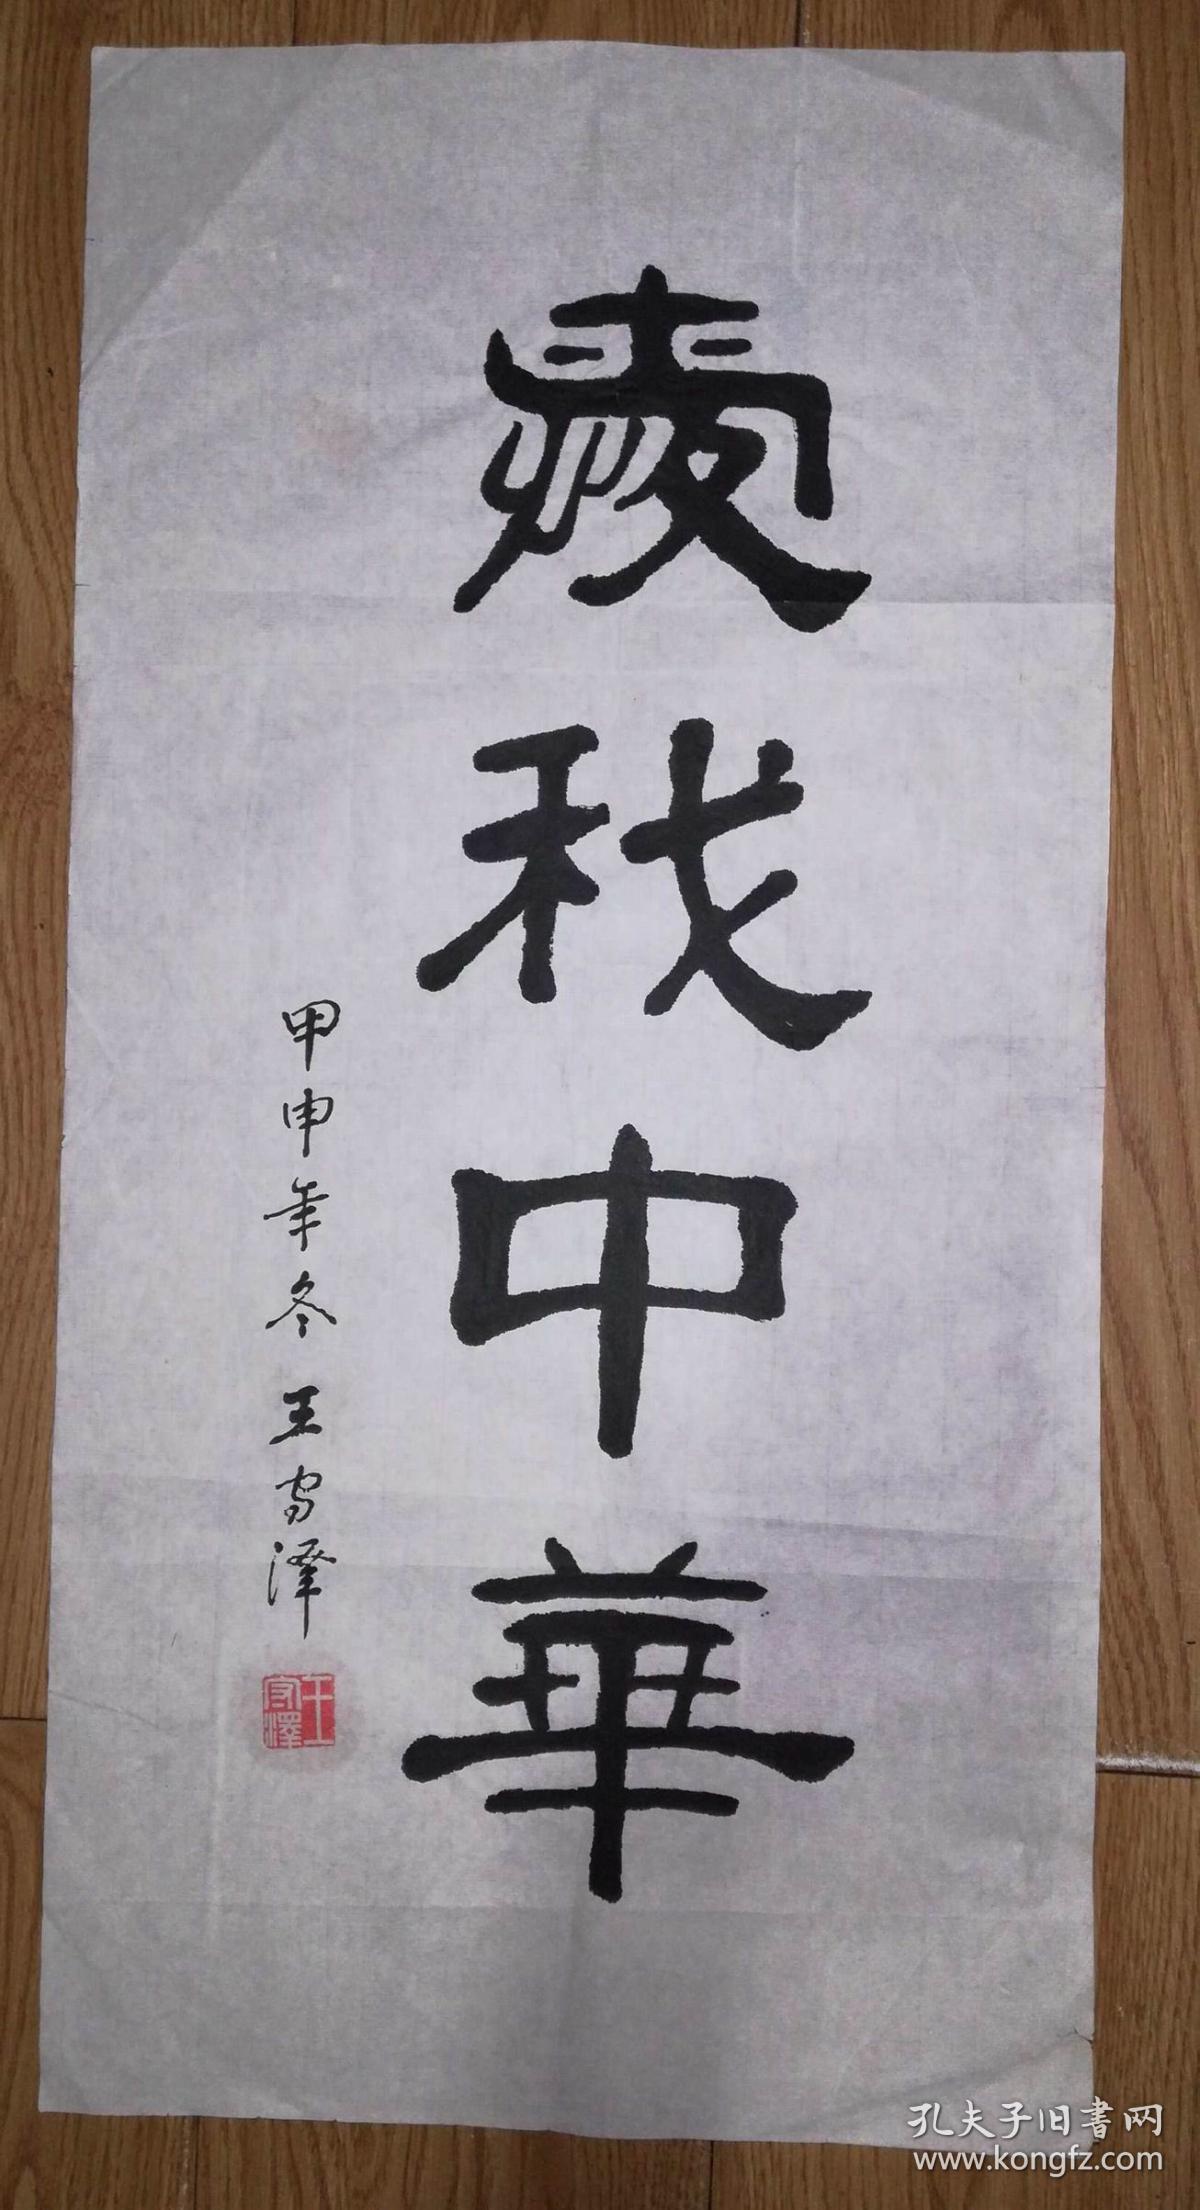 愛我中華
甲申年冬 王守澤
王守澤
孔夫子旧書网
www.kongfz.com